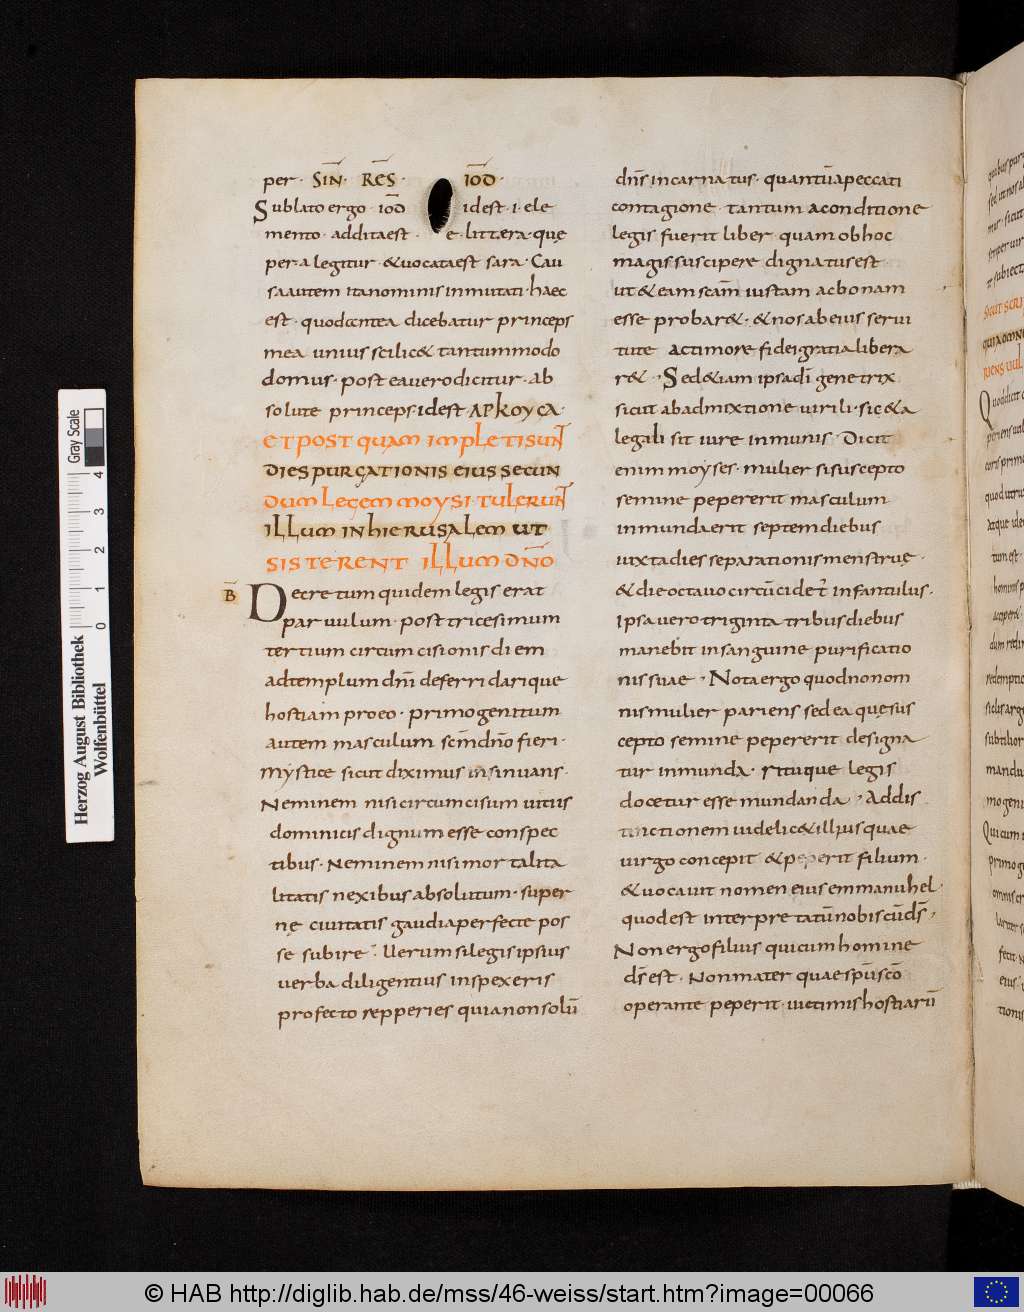 per· SIN̅· RE̅S· IO̅D·
Sublato ergo· io̅d idest· i· ele
mento· additaest· e· littera· quę
per·a legitur· &uocataest sara· Cau
sa autem ita nominis inmutati· haec
est· quod antea dicebatur princeps
mea unius scilic& tantummodo
domus· post ea uero dicitur· ab
solute princeps· idest ΑΡΚΟΥCΑ·
ET POST QUAM IMPLETI SUN̅T
DIES PURGATIONIS EIUS SECUN
DUM LEGEM MOYSI· TULERUN̅T
ILLUM IN HIERUSALEM UT
SISTERENT ILLUM DN̅O
B̅ Decretum quidem legis erat
paruulum· post tricesimum
tertium circumcisionis diem
ad templum dni̅ deferri darique
hostiam pro eo· primogenitum
autem masculum scm̅ dno̅ fieri·
Mystice sicut diximus insinuans·
Neminem nisi circumcisum uitiis
dominicis dignum esse conspec
tibus· Neminem nisi mortalita
litatis nexibus absolutum· super
nę ciuitatis gaudia perfecte pos
se subire· Uerum si legis ipsius
uerba diligentius inspexeris
profecto repperies quia non solu̅
dns̅ incarnatus· quantu̅ a peccati
contagione· tantum a conditione
legis fuerit liber· quam ob hoc
magis suscipere dignatus est·
ut & eam scam̅ iustam ac bonam
esse probar&· & nos ab eius serui
tute ac timore fidei gratia libera
r&· Sed &iam ipsa di̅ genetrix
sicut ab admixtione uirili· sic & a
legali sit iure inmunis· Dicit
enim moyses· mulier si suscepto
semine pepererit masculum
inmunda erit septem diebus
iuxta dies separationis menstruę·
& die octauo circu̅cidet̅ infantulus·
Ipsa uero triginta tribus diebus
manebit in sanguine purificatio
nis suae· Nota ergo quod non om
nis mulier pariens sed ea quę sus
cepto semine pepererit designa
tur inmunda· rituque legis
docetur esse mundanda· Addis
tinctionem uidelic& illius quae
uirgo concepit & peperit filium·
& uocauit nomen eius emmanuhel·
quod est interpretatu̅ nobiscu̅ ds̅·
Non ergo filius qui cum homine
ds̅ est· Non mater quae spu̅ sco̅
operante peperit· uictimis hostiaru̅
Herzog August Bibliothek
Wolfenbüttel
Gray Scale
0 1 2 3 4
© HAB http://diglib.hab.de/mss/46-weiss/start.htm?image=00066